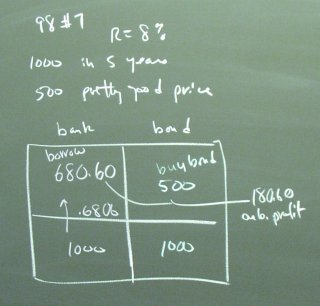 98 #7
R = 8%
1000 in 5 years
500 pretty good price
bank bond
borrow
680.60
buy bond
500
180.60
arb. profit
.6806
1000 1000